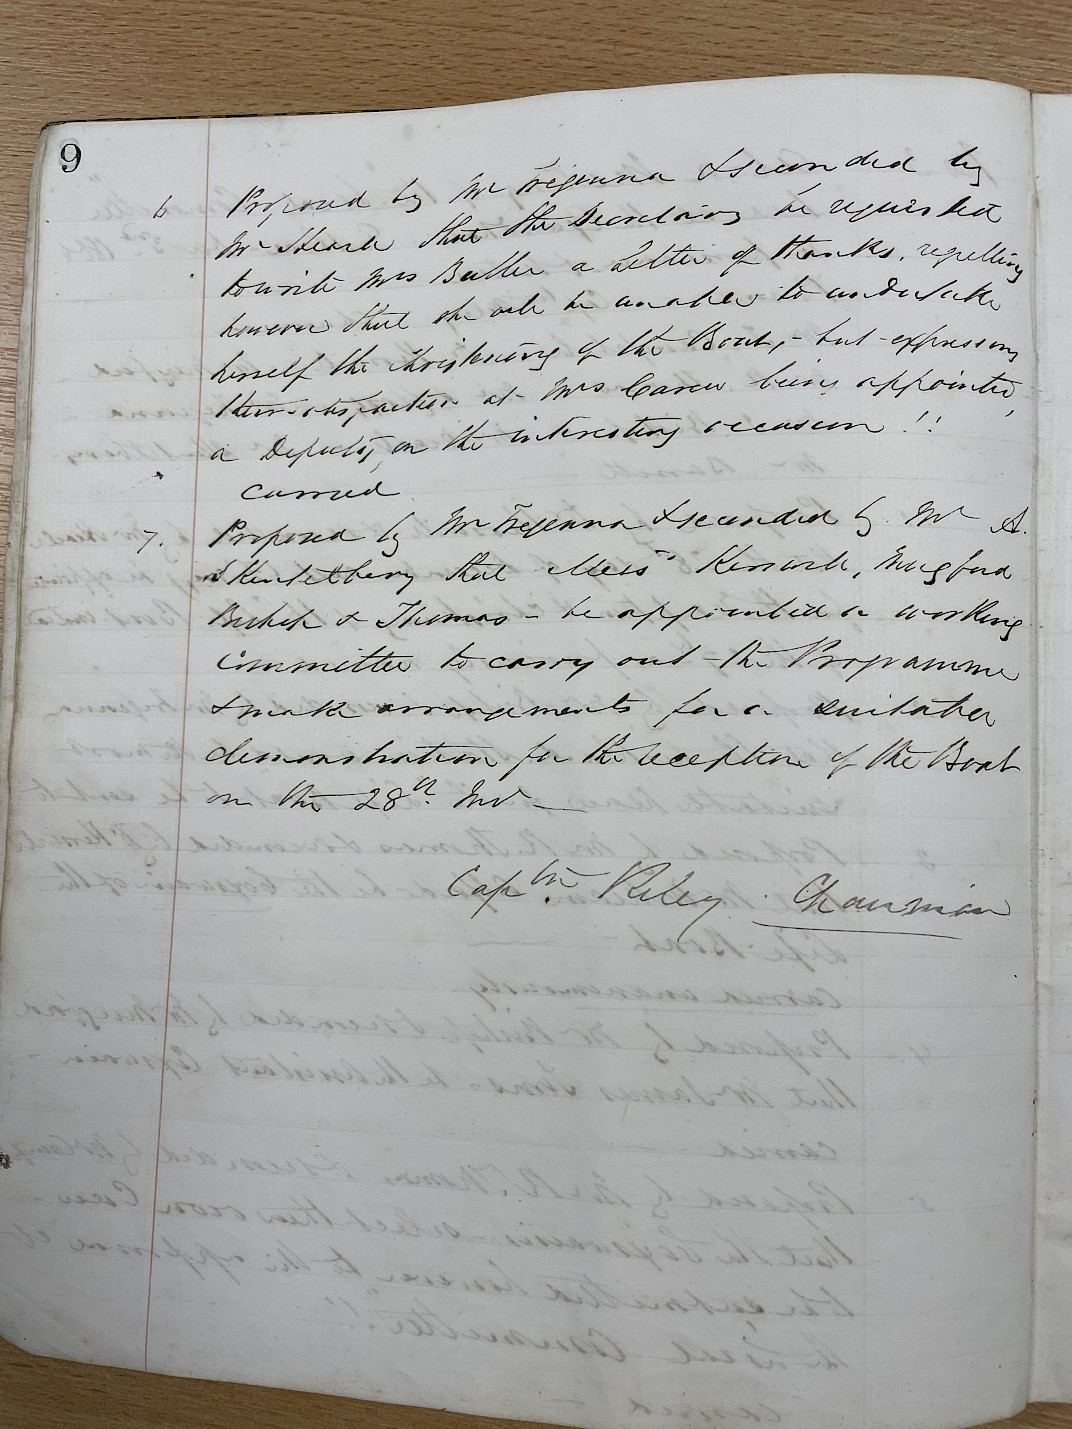 9
6 Proposed by Mr Tregenna & seconded by
Mr Heard that the Secretary be requested
to write Mrs Buller a Letter of thanks, regretting
however that she will be unable to undertake
herself the Christening of the Boat, - but expressing
their satisfaction at Mrs Carew being appointed
a Deputy, on the interesting occasion !!
carried
7. Proposed by Mr Tregenna & seconded by Mr A.
that Messrs Mugford
& Thomas - be appointed a working
Committee to carry out the Programme
& make arrangements for a suitable
demonstration for the reception of the Boat
on the 28th. Inst
Captn. Riley Chairman